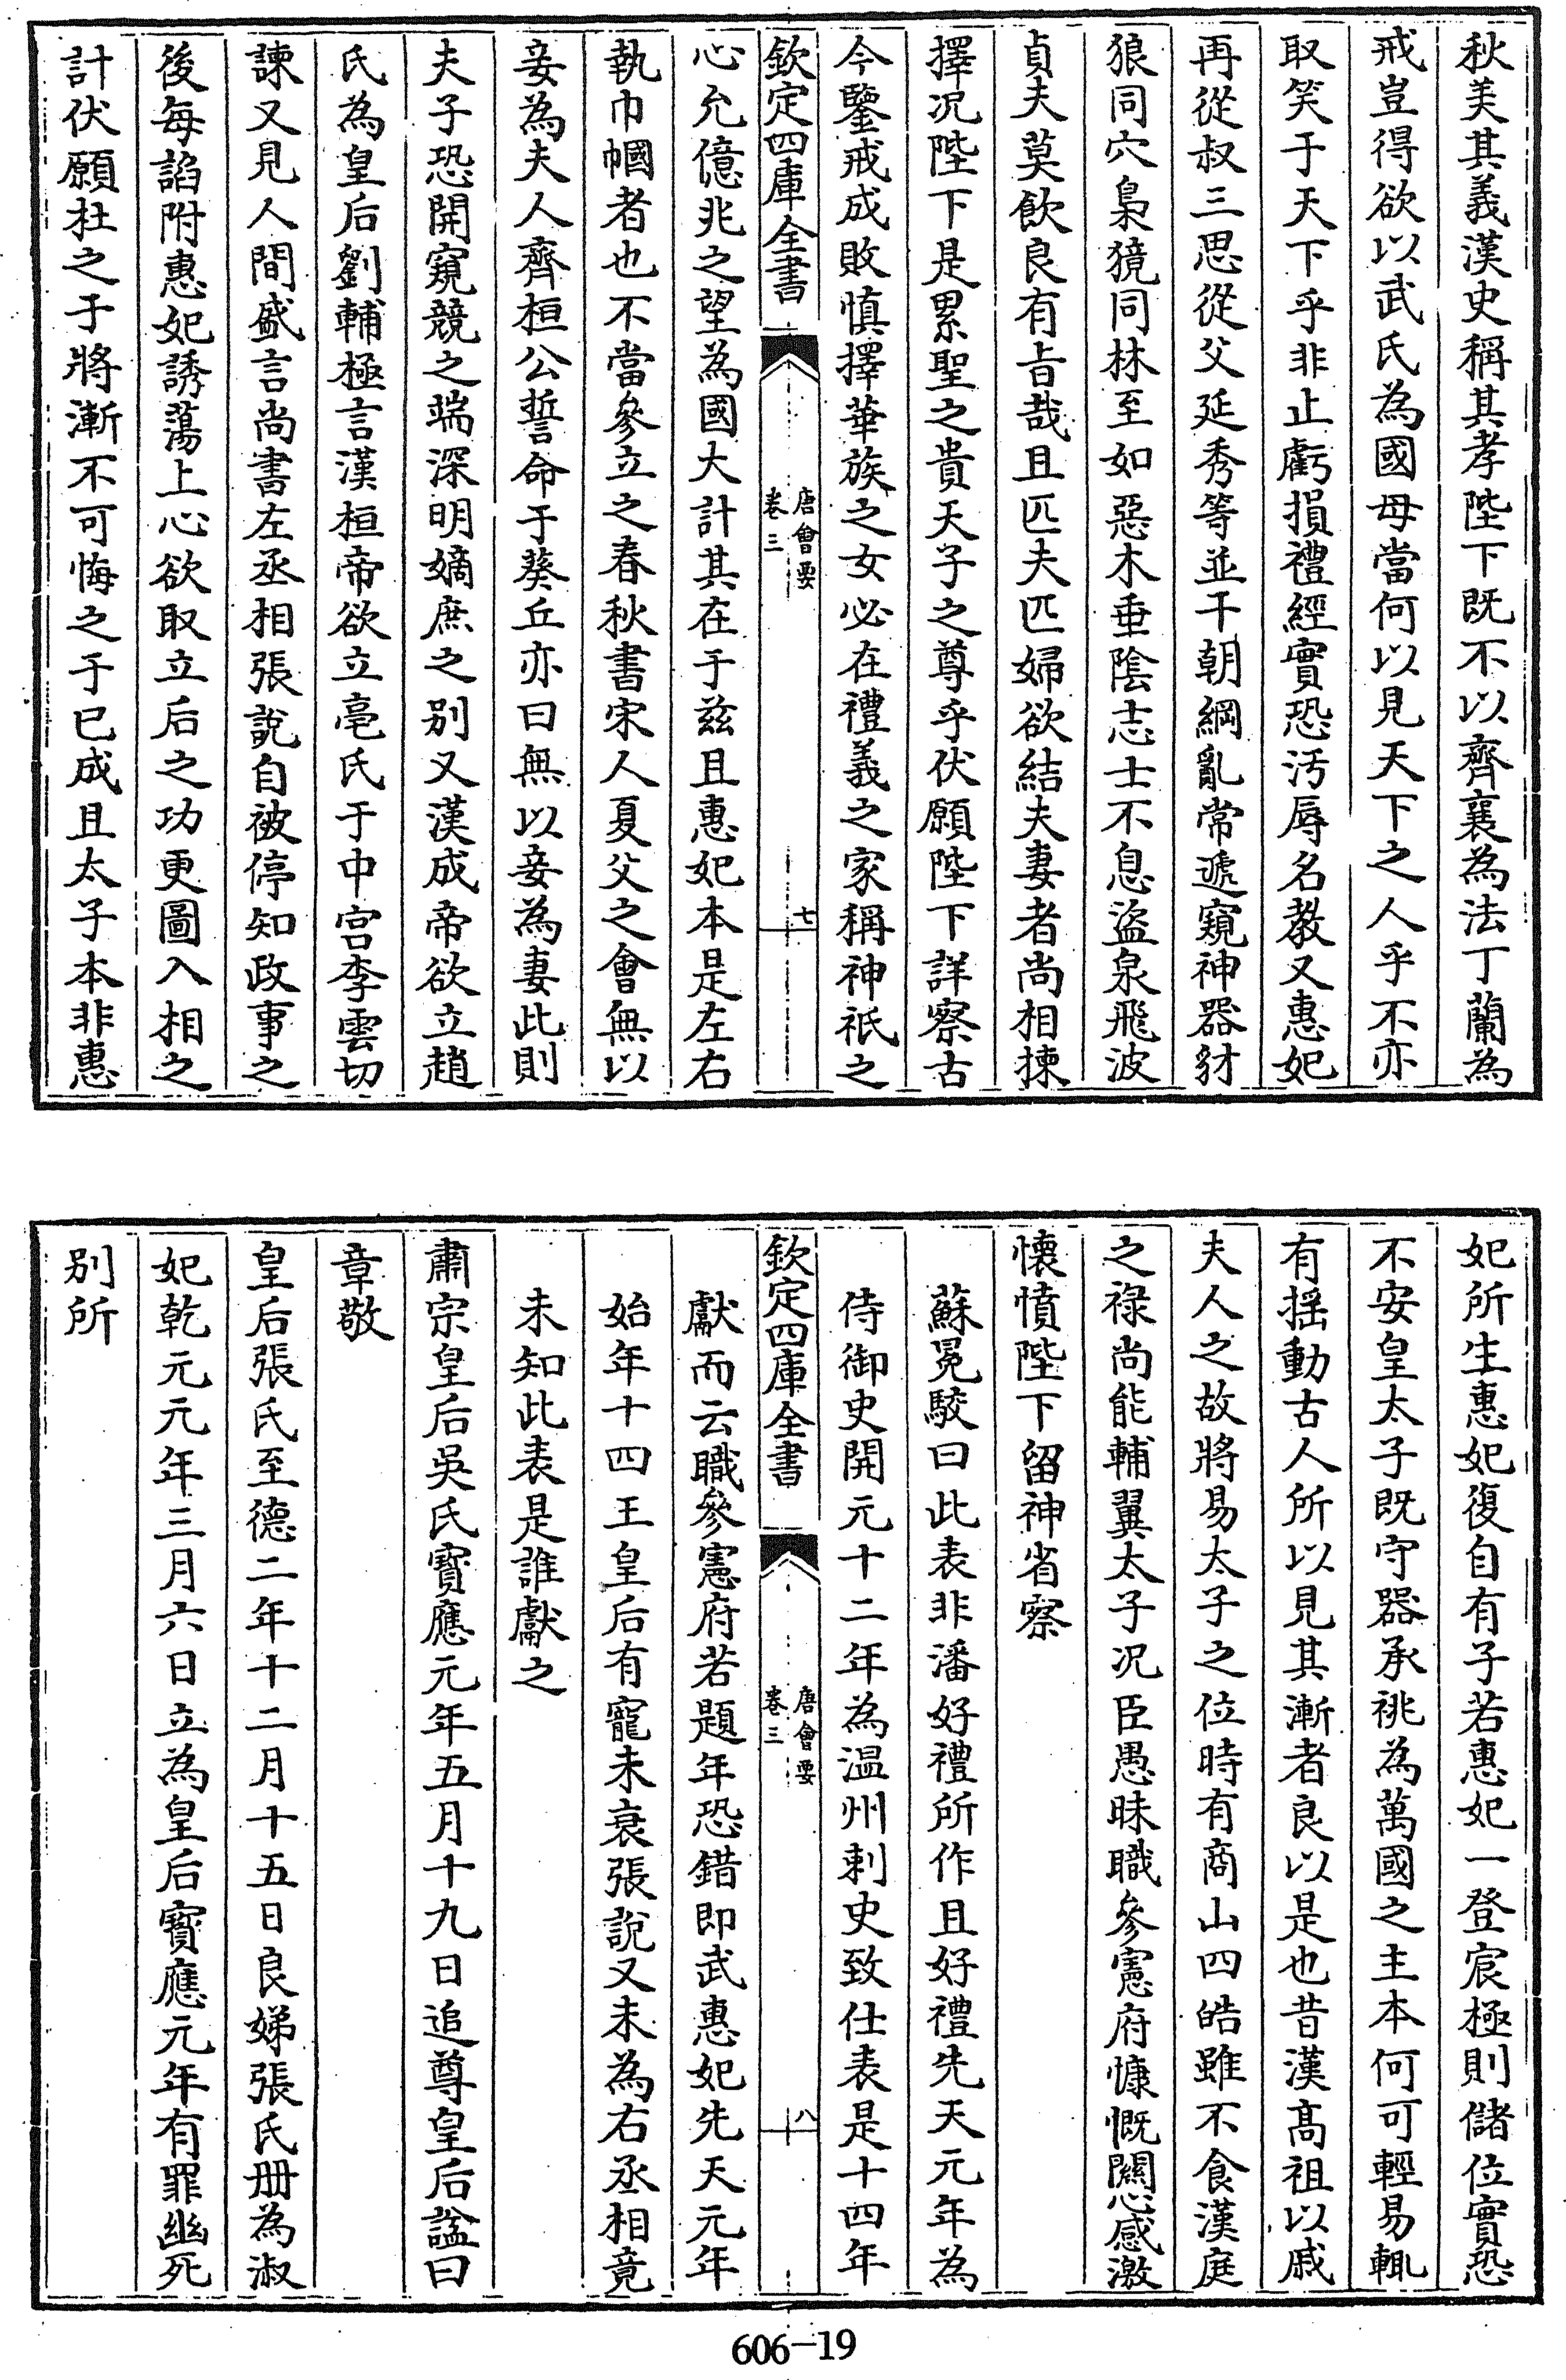 秋美其義漢史稱其孝陛下既不以齊襄為法丁蘭為
戒豈得欲以武氏為國母當何以見天下之人乎不亦
取笑于天下乎非止虧損禮經實恐汚辱名教又惠妃
再從叔三思從父延秀等並干朝綱亂常遞窺神器豺
狼同穴梟獍同林至如惡木垂陰志士不息盜泉飛波
貞夫莫飲良有旨哉且匹夫匹婦欲結夫妻者尚相揀
擇况陛下是累聖之貴天子之尊乎伏願陛下詳察古
今鑒戒成敗慎擇華族之女必在禮義之家稱神祇之
欽定四庫全書
唐會要
卷三
七
心允億兆之望為國大計其在于兹且惠妃本是左右
執巾幗者也不當參立之春秋書宋人夏父之會無以
妾為夫人齊桓公誓命于葵丘亦曰無以妾為妻此則
夫子恐開窺競之端深明嫡庶之别又漢成帝欲立趙
氏為皇后劉輔極言漢桓帝欲立亳氏于中宫李雲切
諫又見人間盛言尚書左丞相張說自被停知政事之
後每諂附惠妃誘蕩上心欲取立后之功更圖入相之
計伏願杜之于將漸不可悔之于已成且太子本非惠
妃所生惠妃復自有子若惠妃一登宸極則儲位實恐
不安皇太子既守器承祧為萬國之主本何可輕易輒
有摇動古人所以見其漸者良以是也昔漢髙祖以戚
夫人之故將易太子之位時有商山四皓雖不食漢庭
之祿尚能輔翼太子况臣愚昧職參憲府慷慨闕心感激
懷憤陛下留神省察
蘇冕駮曰此表非潘好禮所作且好禮先天元年為
侍御史開元十二年為温州刺史致仕表是十四年
欽定四庫全書
唐會要
卷三
八
獻而云職參憲府若題年恐錯即武惠妃先天元年
始年十四王皇后有寵未衰張說又未為右丞相竟
未知此表是誰獻之
肅宗皇后吳氏寳應元年五月十九日追尊皇后諡曰
章敬
皇后張氏至德二年十二月十五日良娣張氏册為淑
妃乾元元年三月六日立為皇后寳應元年有罪幽死
别所
606-19